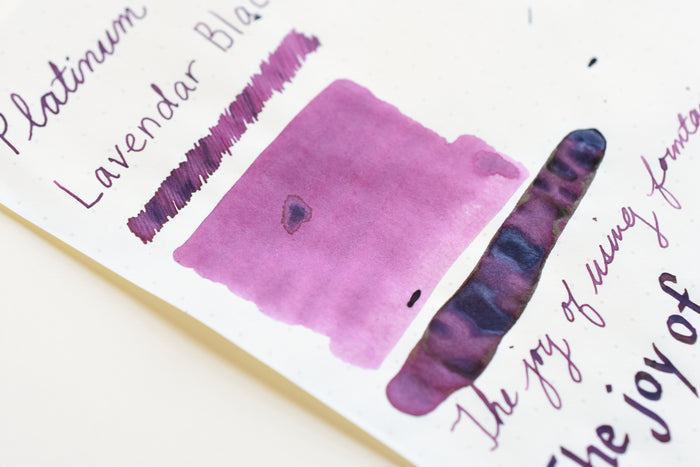 Platinum
Lavendar Blac
The joy of using fountai
The joy of